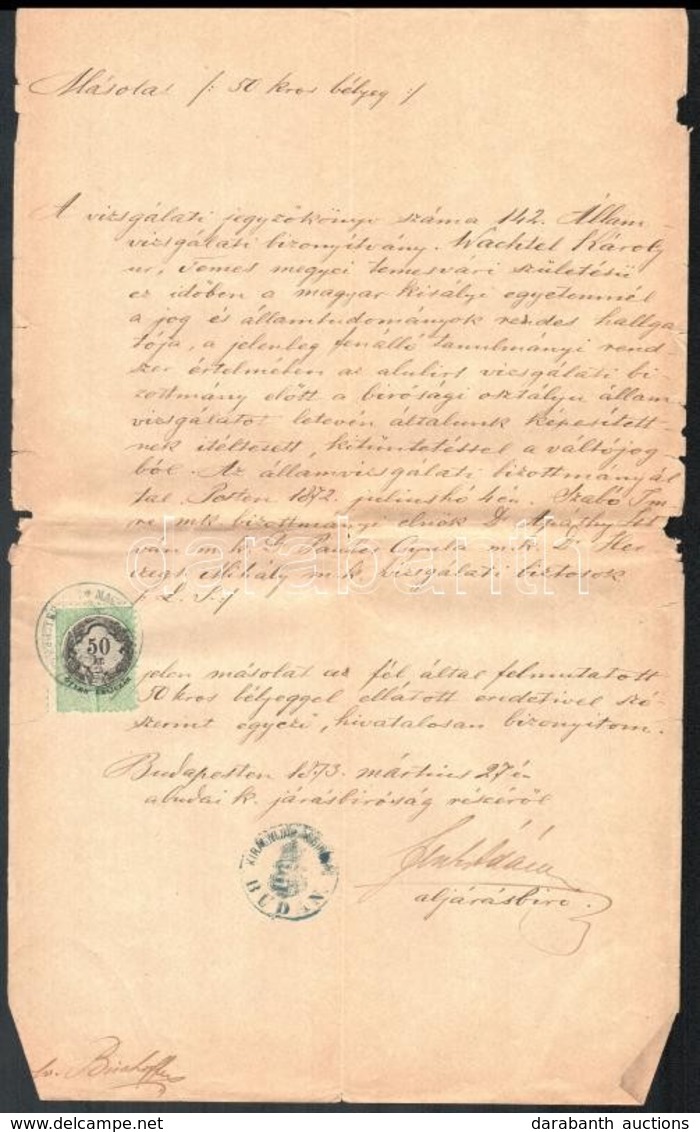 Másolat /: 50 kros bélyeg :/
A vizsgálati jegyzőkönyv száma 142. Állam-
vizsgálati bizonyítvány. Wachtel Károly
úr, Temes megyei temesvári születésű
ez időben a magyar királyi egyetemnél
a jog és államtudományok rendes hallga
tója, a jelenleg fenálló tanulmányi rend-
szer értelmében az alulirt vizsgálati bi-
zottmány előtt a birósági osztályu állam
vizsgálatot letevén általunk képesített-
nek itéltetett, kitüntetéssel a váltójog
ból. Az államvizsgálati bizottmányál
tal. Pesten 1872. juliushó 4én. Szabó Im
re mk bizottmányi elnök Dr Apáthy Ist
ván m.k. Dr Pauler Gyula m.k. Dr Her
czegh Mihály m.k. vizsgálati biztosok
/: L. S. :/
50
KR
jelen másolat az fél által felmutatott
50 kros bélyeggel ellátott eredetivel szó-
szerint egyező, hivatalosan bizonyitom.
Budapesten 1873. mártius 27én
a budai k. járásbiróság részéről
BUDÁN.
aljárásbiró.
darabanth
darabanth auctions
www.delcampe.net